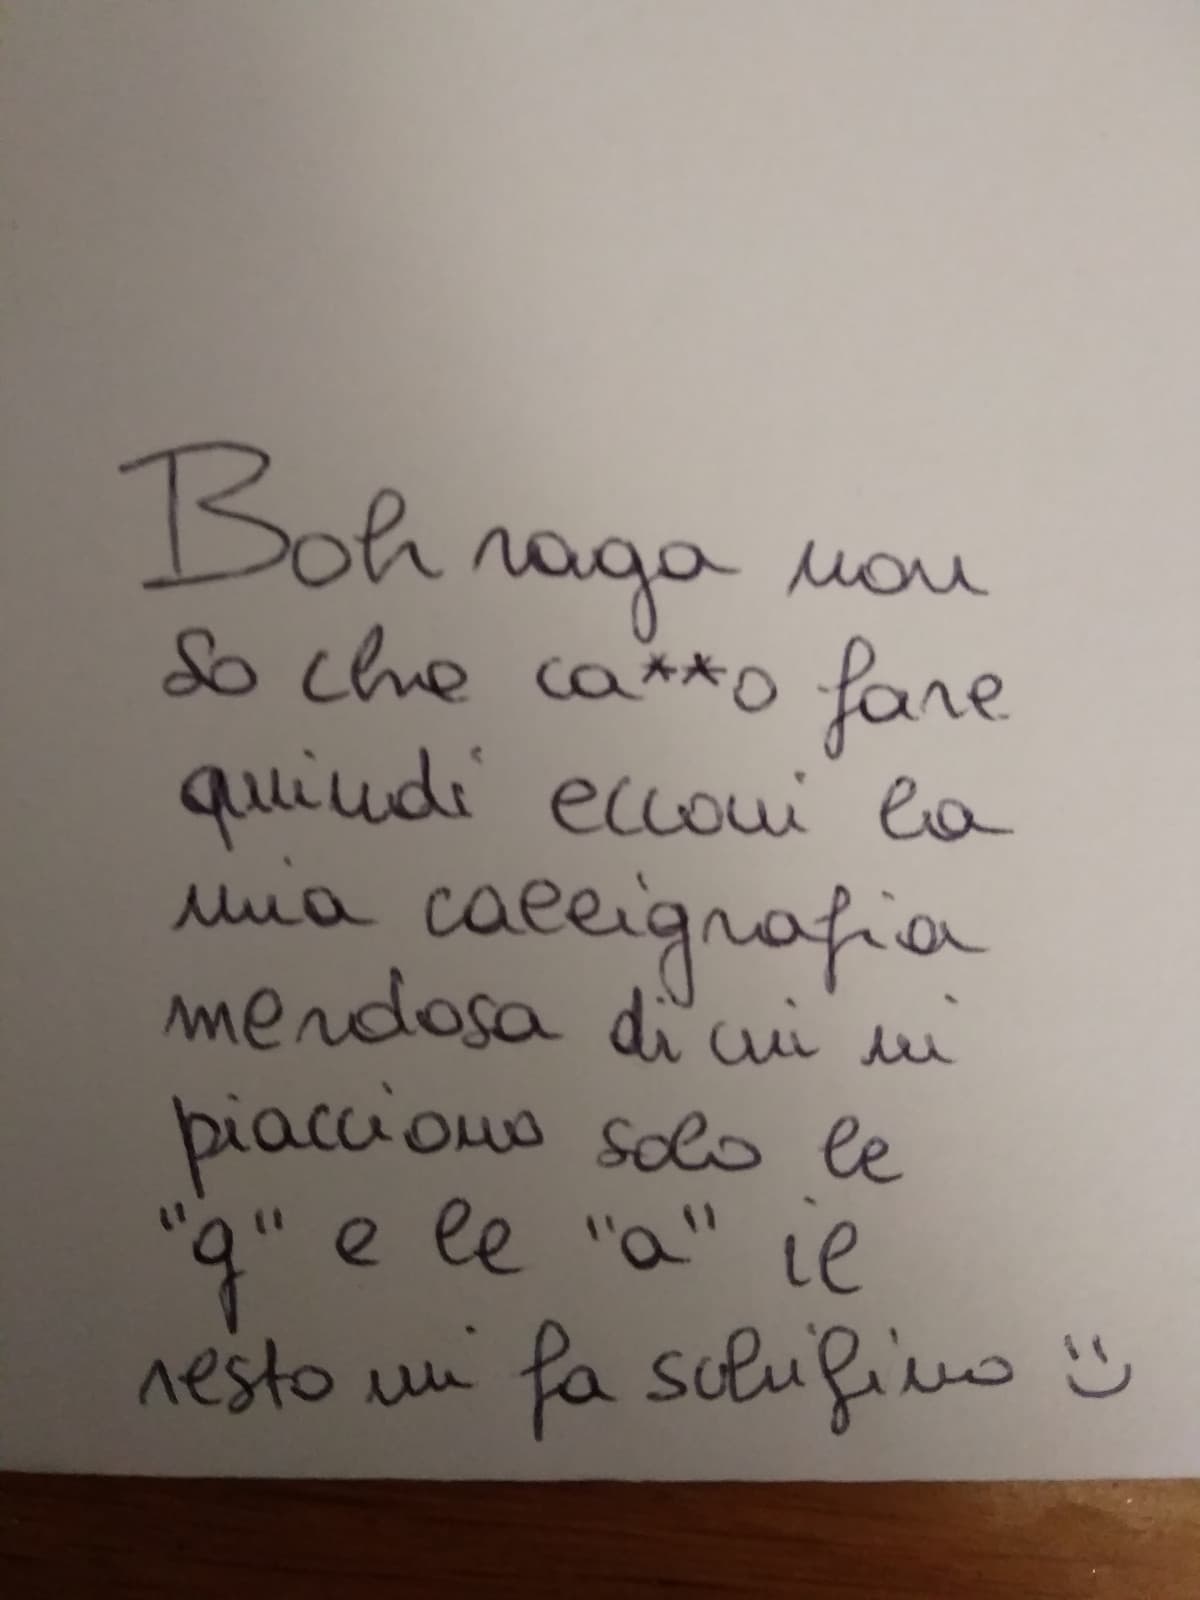 Boh raga non
so che ca**o fare
quindi eccovi la
mia calligrafia
merdosa di cui mi
piacciono solo le
"g" e le "a" il
resto mi fa schifino :)